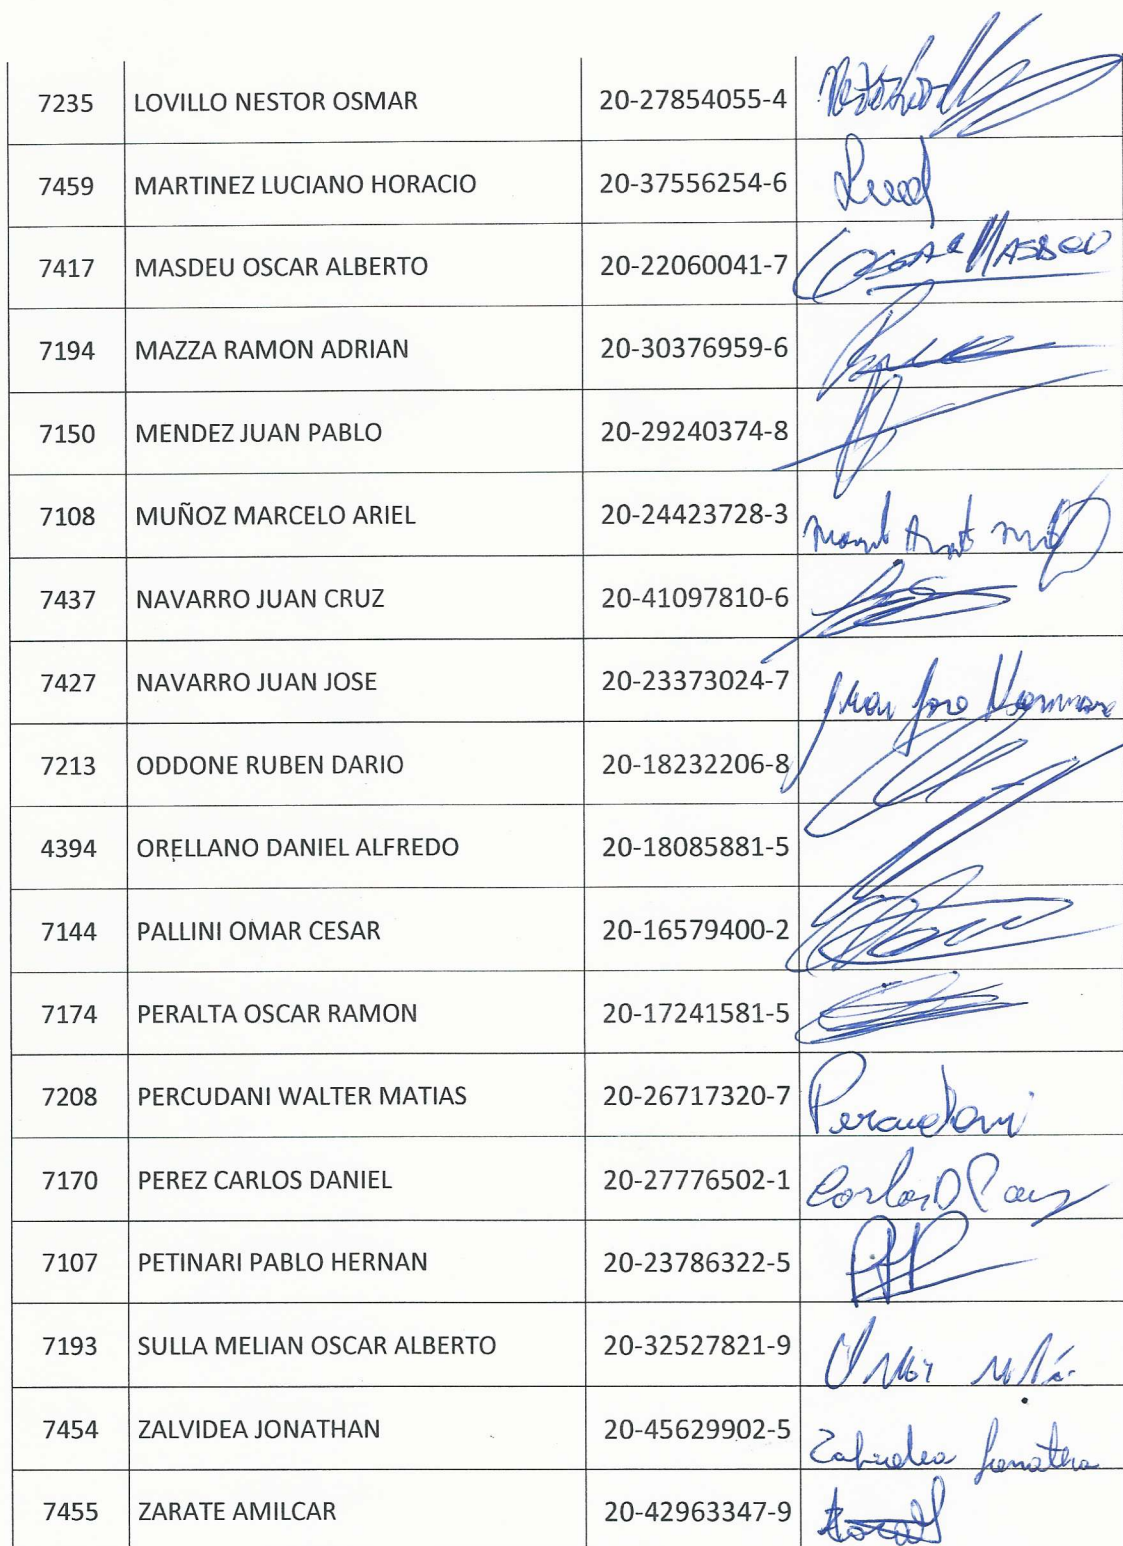 7235 LOVILLO NESTOR OSMAR 20-27854055-4
7459 MARTINEZ LUCIANO HORACIO 20-37556254-6
7417 MASDEU OSCAR ALBERTO 20-22060041-7 OSCAR MASDEU
7194 MAZZA RAMON ADRIAN 20-30376959-6
7150 MENDEZ JUAN PABLO 20-29240374-8
7108 MUÑOZ MARCELO ARIEL 20-24423728-3
7437 NAVARRO JUAN CRUZ 20-41097810-6
7427 NAVARRO JUAN JOSE 20-23373024-7 Juan Jose Navarro
7213 ODDONE RUBEN DARIO 20-18232206-8
4394 ORELLANO DANIEL ALFREDO 20-18085881-5
7144 PALLINI OMAR CESAR 20-16579400-2
7174 PERALTA OSCAR RAMON 20-17241581-5
7208 PERCUDANI WALTER MATIAS 20-26717320-7 Percudani
7170 PEREZ CARLOS DANIEL 20-27776502-1 Carlos D Perez
7107 PETINARI PABLO HERNAN 20-23786322-5
7193 SULLA MELIAN OSCAR ALBERTO 20-32527821-9
7454 ZALVIDEA JONATHAN 20-45629902-5 Zalvidea Jonathan
7455 ZARATE AMILCAR 20-42963347-9